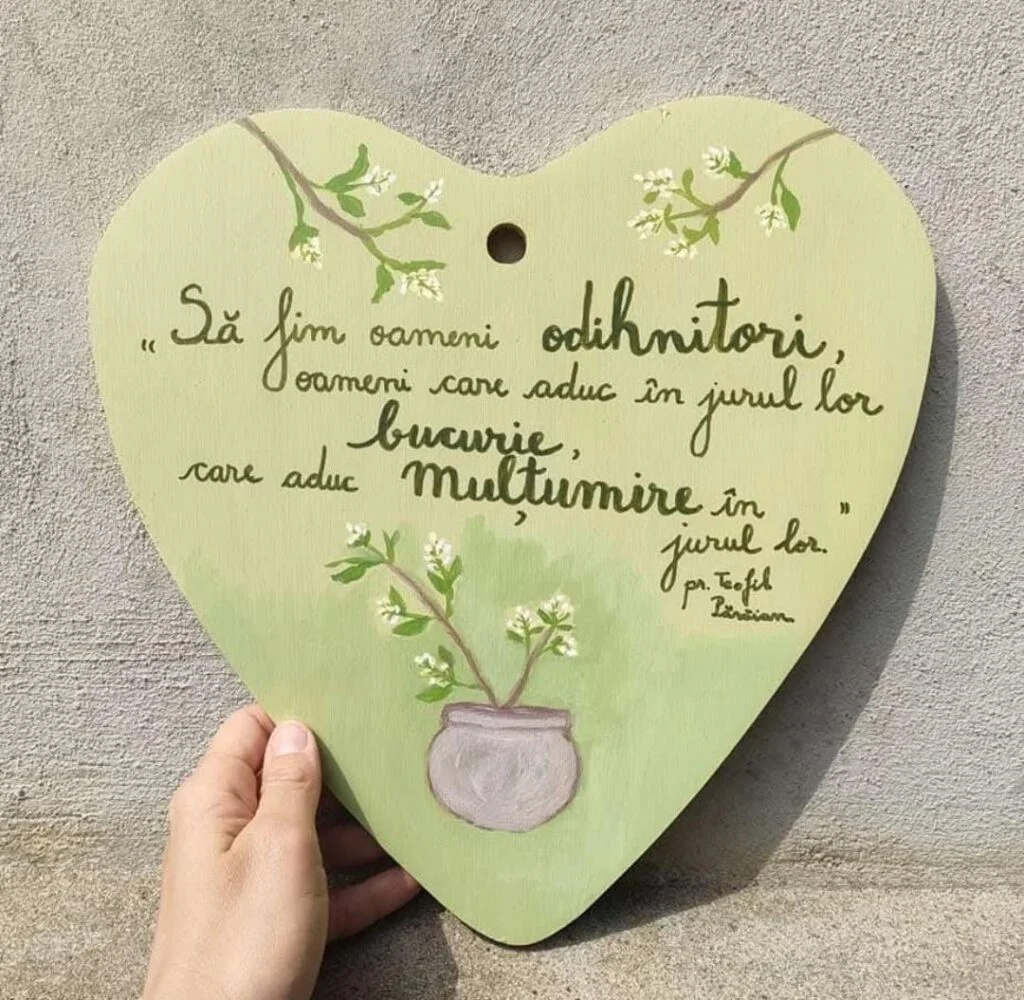 „Să fim oameni odihnitori,
oameni care aduc în jurul lor
bucurie,
care aduc mulțumire în
jurul lor.”
pr. Teofil
Părăian